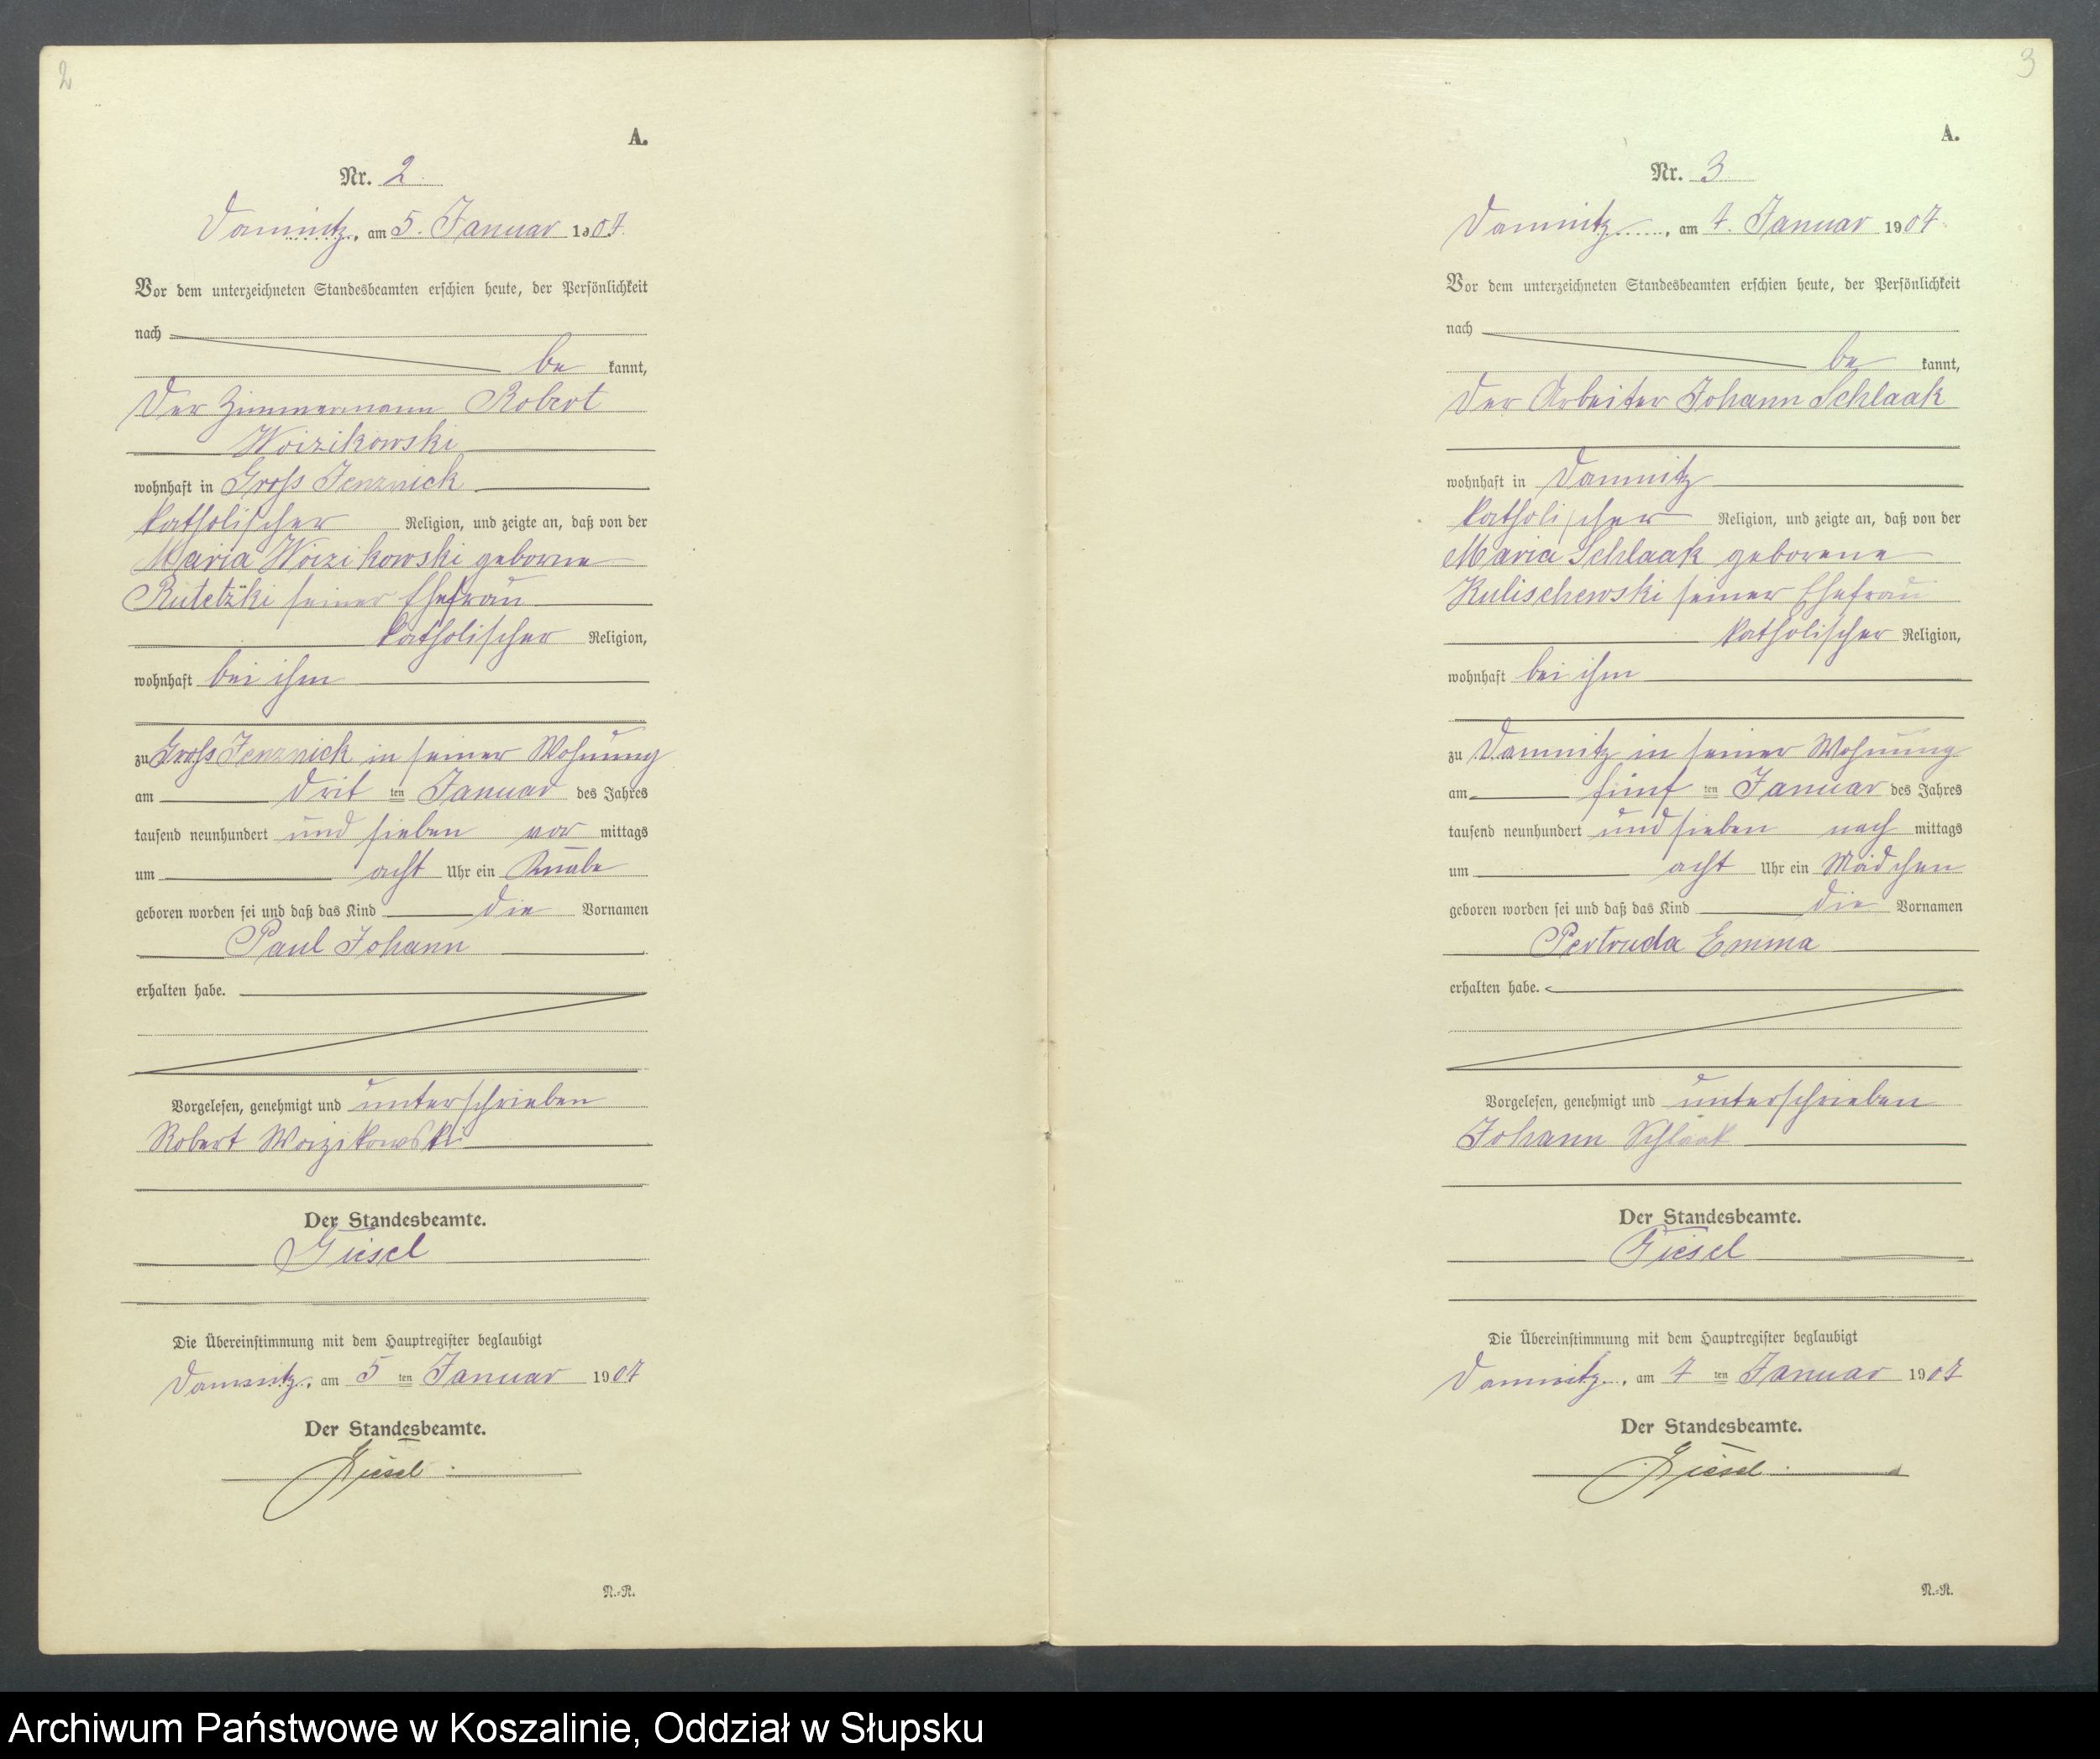 2
A.
Nr. 2
Damnitz, am 5. Januar 1907.
Vor dem unterzeichneten Standesbeamten erschien heute, der Persönlichkeit
nach
be kannt,
der Zimmermann Robert
Woizikowski
wohnhaft in Gross Jenznick
katholischer Religion, und zeigte an, daß von der
Maria Woizikowski geborne
Rutetzki seiner Ehefrau
katholischer Religion,
wohnhaft bei ihm
zu Gross Jenznick in seiner Wohnung
am drit ten Januar des Jahres
tausend neunhundert und sieben vor mittags
um acht Uhr ein Knabe
geboren worden sei und daß das Kind die Vornamen
Paul Johann
erhalten habe.
Vorgelesen, genehmigt und unterschrieben
Robert Woizikowski
Der Standesbeamte.
Giesel
Die Übereinstimmung mit dem Hauptregister beglaubigt
Damnitz, am 5 ten Januar 1907
Der Standesbeamte.
Giesel
N.-R.
3
A.
Nr. 3
Damnitz, am 7. Januar 1907
Vor dem unterzeichneten Standesbeamten erschien heute, der Persönlichkeit
nach
be kannt,
der Arbeiter Johann Schlaak
wohnhaft in Damnitz
katholischer Religion, und zeigte an, daß von der
Maria Schlaak geborene
Kulischewski seiner Ehefrau
katholischer Religion,
wohnhaft bei ihm
zu Damnitz in seiner Wohnung
am fünf ten Januar des Jahres
tausend neunhundert und sieben nach mittags
um acht Uhr ein Mädchen
geboren worden sei und daß das Kind die Vornamen
Gertruda Emma
erhalten habe.
Vorgelesen, genehmigt und unterschrieben
Johann Schlaak
Der Standesbeamte.
Giesel
Die Übereinstimmung mit dem Hauptregister beglaubigt
Damnitz, am 7 ten Januar 1907
Der Standesbeamte.
Giesel
N.-R.
Archiwum Państwowe w Koszalinie, Oddział w Słupsku